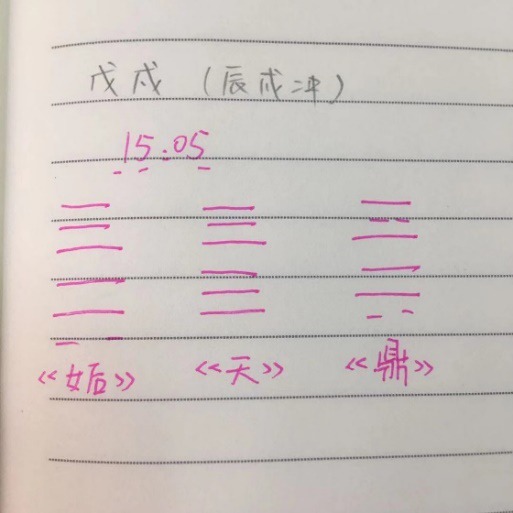 戊戌（辰戌冲）
15:05
《姤》 《天》 《鼎》